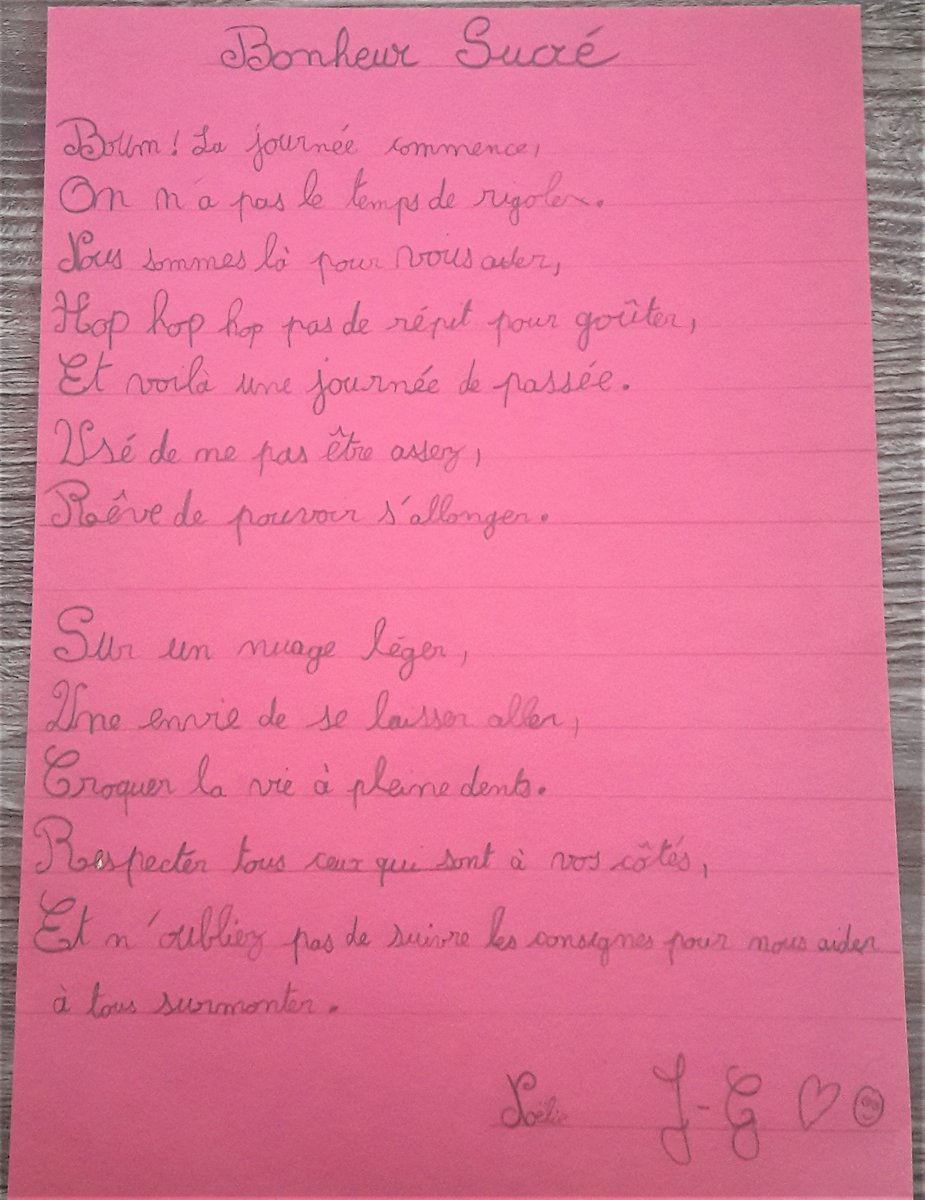 Bonheur Sucré
Boum ! La journée commence,
On n'a pas le temps de rigoler.
Nous sommes là pour vous aider,
Hop hop hop pas de répit pour goûter,
Et voilà une journée de passée.
Usé de ne pas être assez,
Rêve de pouvoir s'allonger.
Sur un nuage léger,
Une envie de se laisser aller,
Croquer la vie à pleine dents.
Respecter tous ceux qui sont à vos côtés,
Et n'oubliez pas de suivre les consignes pour nous aider
à tous surmonter.
Noélie J-G